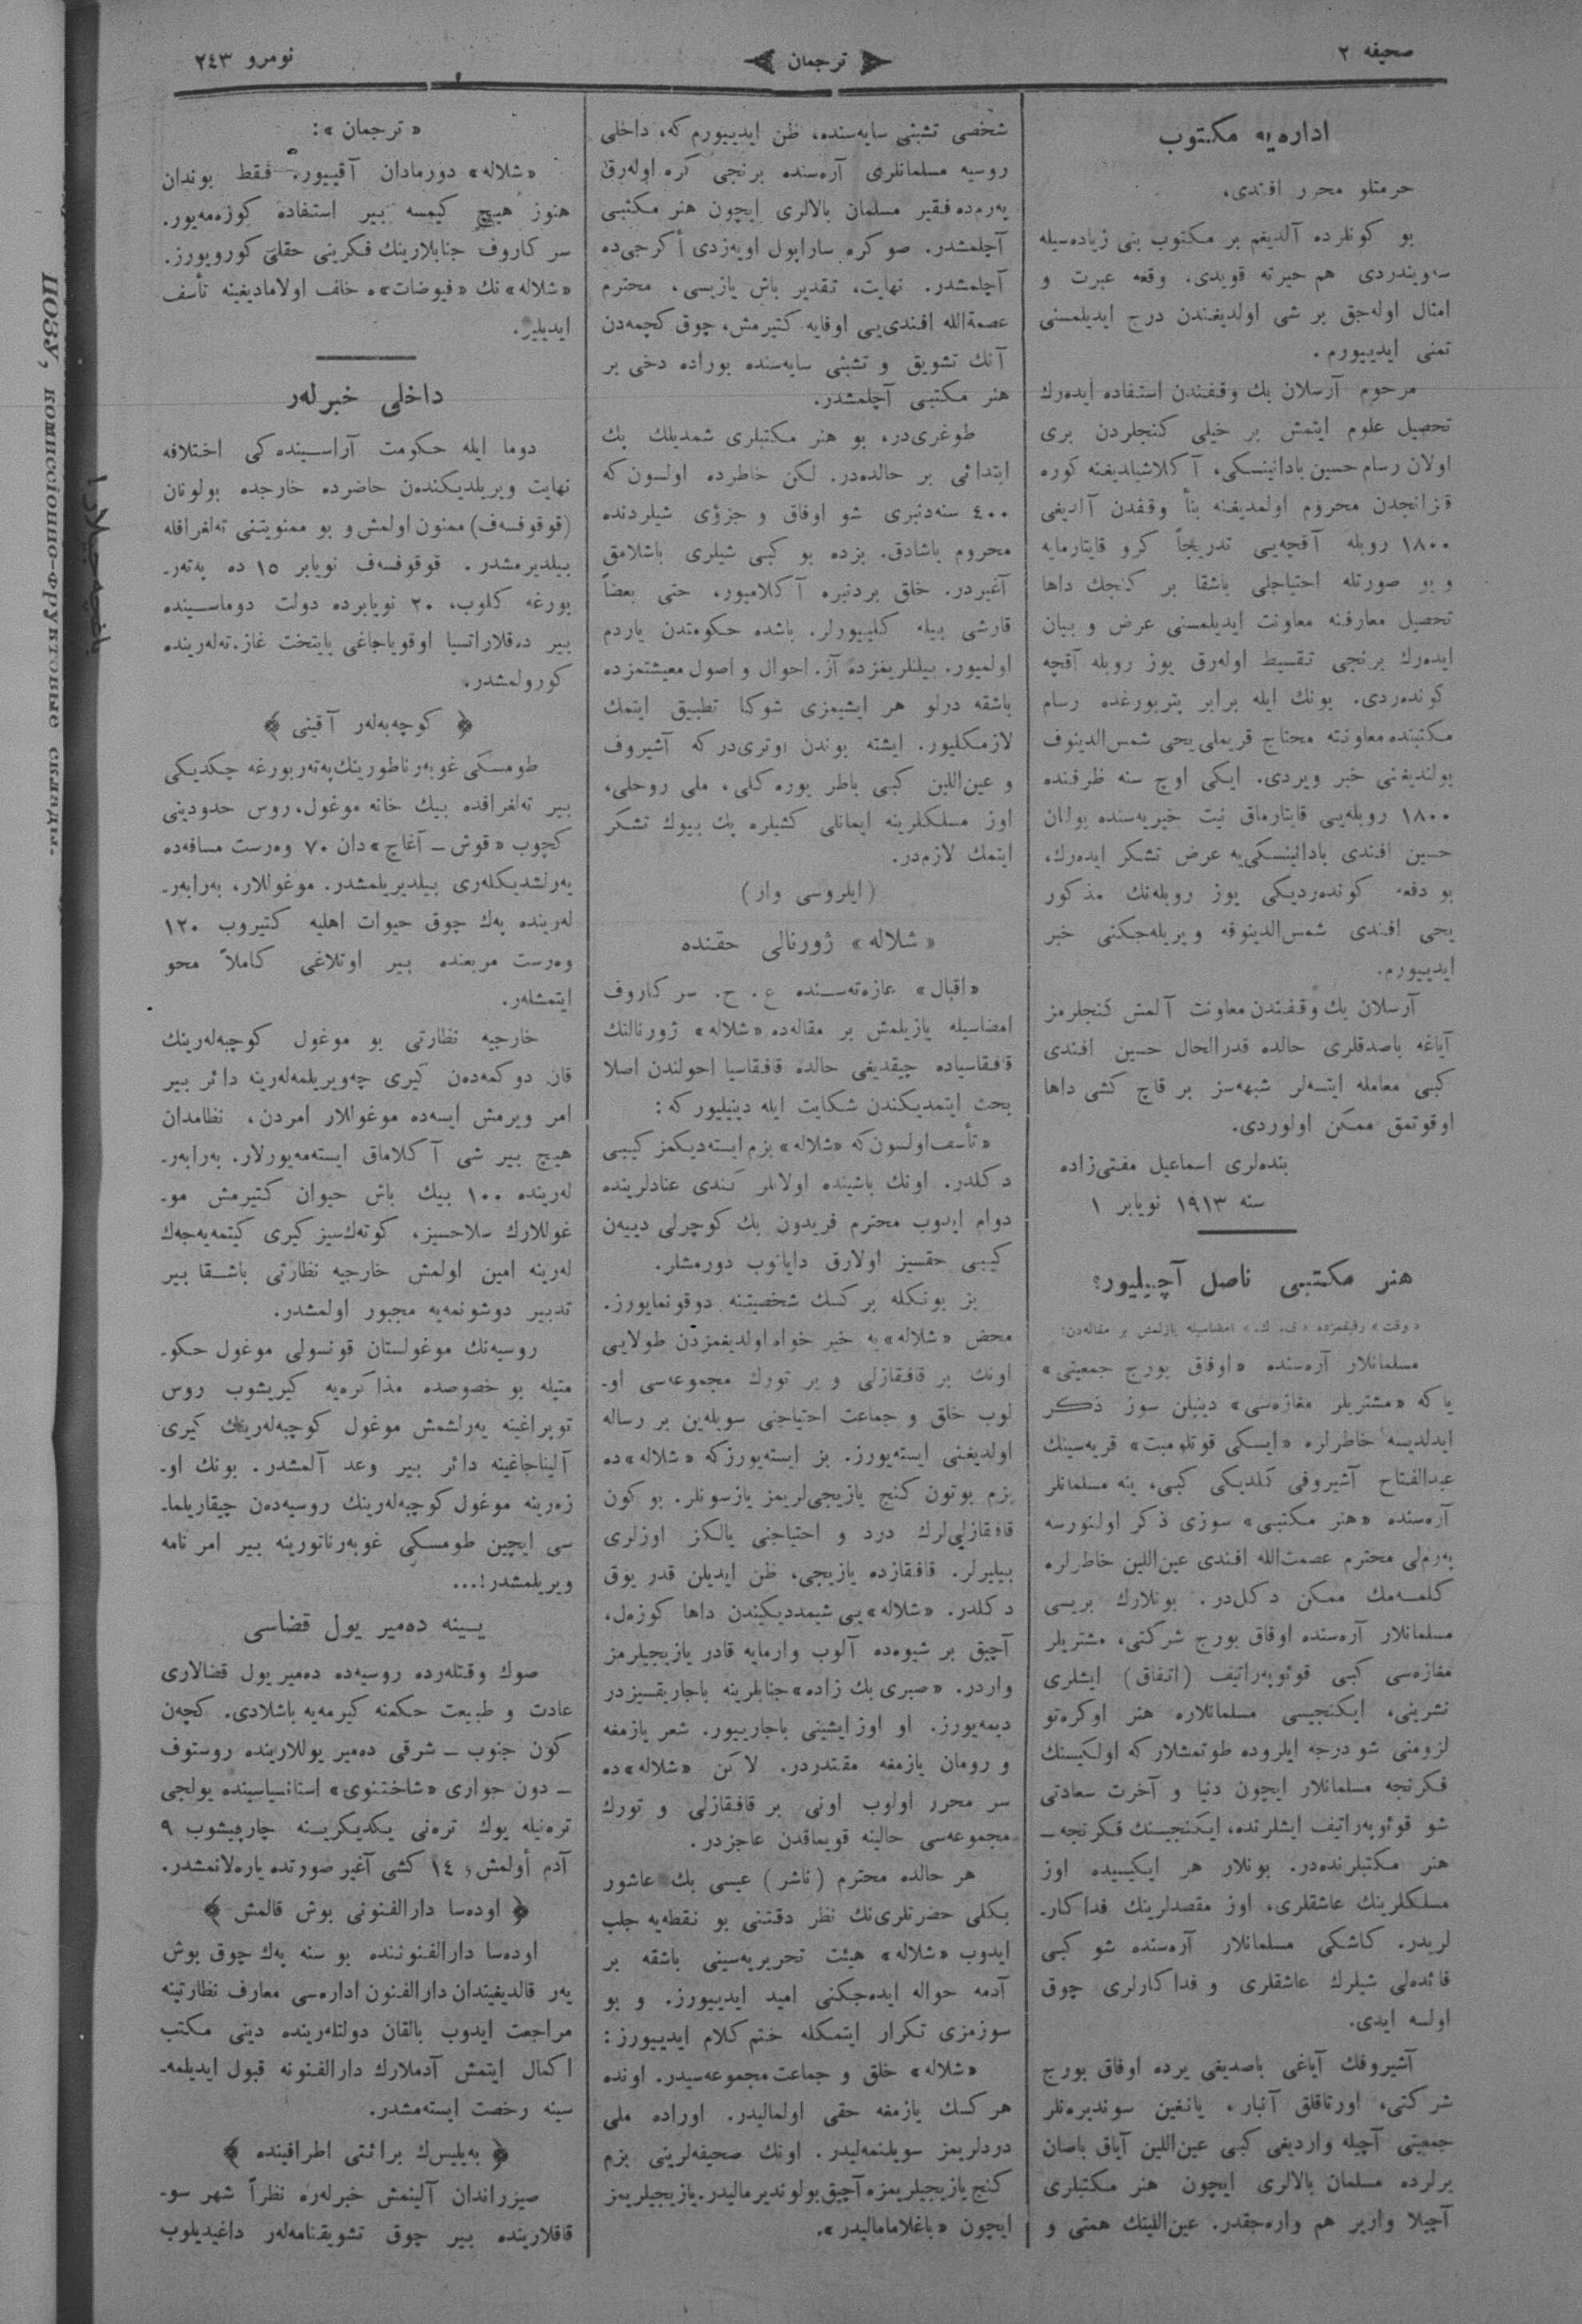 صحيفه ٢
ترجمان
نومرو ٢٤٣
اداره‌يه مكتوب
حرمتلو محرر افندی،
بو كونلرده آلديغم بر مكتوب بنی زياده‌سيله
سه‌ويندردی هم حيرته قويدی. وقعه عبرت و
امثال اوله‌جق بر شی اولديغندن درج ايديلمسنی
تمنی ايدييورم.
مرحوم آرسلان بك وقفندن استفاده ايده‌رك
تحصيل علوم ايتمش بر خيلی كنجلردن بری
اولان رسام حسين بادانينسكی، آكلاشيلديغنه كوره
قزانجدن محروم اولمديغنه بناً وقفدن آلديغی
١٨٠٠ روبله آقچه‌يی تدريجاً كرو قايتارمايه
و بو صورتله احتياجلی باشقا بر كنجك داها
تحصيل معارفنه معاونت ايديلمسنی عرض و بيان
ايده‌رك برنجی تقسيط اوله‌رق يوز روبله آقچه
كونده‌ردی. بونك ايله برابر پتربورغده رسام
مكتبنده معاونته محتاج قريملی يحی شمس‌الدينوف
بولنديغنی خبر ويردی. ايكی اوچ سنه ظرفنده
١٨٠٠ روبله‌يی قايتارماق نيت خيريه‌سنده بولنان
حسين افندی بادانينسكی‌يه عرض تشكر ايده‌رك،
بو دفعه كونده‌رديكی يوز روبله‌نك مذكور
يحی افندی شمس‌الدينوفه ويريله‌جكنی خبر
ايدييورم.
آرسلان بك وقفندن معاونت آلمش كنجلرمز
آياغه باصدقلری حالده قدرالحال حسين افندی
كبی معامله ايتسه‌لر شبهه‌سز بر قاچ كشی داها
اوقوتمق ممكن اولوردی.
بنده‌لری اسماعيل مفتی‌زاده
سنه ١٩١٣ نويابر ١
هنر مكتبی ناصل آچيليور؟
«وقت» رفيقمزده «ف. ك.» امضاسيله يازلمش بر مقاله‌دن:
مسلمانلار آره‌سنده «اوفاق بورج جمعيتی»
ياكه «مشتريلر مغازه‌سی» دينيلن سوز ذكر
ايدلديسه خاطرلره «ايسكی قوتلومبت» قريه‌سينك
عبدالفتاح آشيروفی كلديكی كبی، ينه مسلمانلر
آره‌سنده «هنر مكتبی» سوزی ذكر اولنورسه
يه‌رملی محترم عصمت‌الله افندی عين‌اللين خاطرلره
كلمه‌مك ممكن دكل‌در. بونلارك بريسی
مسلمانلار آره‌سنده اوفاق بورج شركتی، مشتريلر
مغازه‌سی كبی قوئوپه‌راتيف (اتفاق) ايشلری
نشرينی، ايكنجيسی مسلمانلاره هنر اوكره‌تو
لزومنی شو درجه ايلروده طوتمشلاركه اولكيسنك
فكرنجه مسلمانلار ايچون دنيا و آخرت سعادتی
شو قوئوپه‌راتيف ايشلرنده، ايكنجيسنك فكرنجه ـ
هنر مكتبلرنده‌در. بونلار هر ايكيسيده اوز
مسلكلرينك عاشقلری، اوز مقصدلرينك فداكار‌ـ
لريدر. كاشكی مسلمانلار آره‌سنده شو كبی
فائده‌لی شيلرك عاشقلری و فداكارلری چوق
اولسه ايدی.
آشيروفك آياغی باصديغی يرده اوفاق بورج
شركتی، اورتاقلق آنبار، يانغين سونديره‌نلر
جمعيتی آچيله وارديغی كبی عين‌اللين آياق باصان
يرلرده مسلمان بالالری ايچون هنر مكتبلری
آچيلا وارير هم واره‌جقدر. عين‌اللينك همتی و
شخصی تشبثی سايه‌سنده، ظن ايدييورم كه، داخلی
روسيه مسلمانلری آره‌سنده برنجی كره اوله‌رق
يه‌رم‌ده فقير مسلمان بالالری ايچون هنر مكتبی
آچلمشدر. صوكره ساراپول اويه‌زدی أكرجی‌ده
آچلمشدر. نهايت، تقدير باش يازيسی، محترم
عصمة‌الله افندی‌يی اوفايه كتيرمش، چوق كچمه‌دن
آنك تشويق و تشبثی سايه‌سنده بوراده دخی بر
هنر مكتبی آچلمشدر.
طوغری‌در، بو هنر مكتبلری شمديلك پك
ابتدائی بر حالده‌در. لكن خاطرده اولسون كه
٤٠٠ سنه‌دنبری شو اوفاق و جزؤی شيلردنده
محروم ياشادق. بزده بو كبی شيلری باشلامق
آغيردر. خلق بردنبره آكلاميور، حتی بعضاً
قارشی بيله كلييورلر. باشده حكومتدن ياردم
اولميور. بيلنلريمزده آز. احوال و اصول معيشتمزده
باشقه درلو هر ايشيمزی شوكا تطبيق ايتمك
لازمكليور. ايشته بوندن اوتری‌دركه آشيروف
و عين‌اللين كبی باطر يوره‌كلی، ملی روحلی،
اوز مسلكلرينه ايمانلی كشيلره پك بيوك تشكر
ايتمك لازم‌در.
(ايلروسی وار)
«شلاله» ژورنالی حقنده
«اقبال» غازه‌ته‌سنده ع. ح. سركاروف
امضاسيله يازيلمش بر مقاله‌ده «شلاله» ژورنالنك
قافقاسياده چيقديغی حالده قافقاسيا احولندن اصلا
بحث ايتمديكندن شكايت ايله دينيليوركه:
«تأسف‌اولسون‌كه «شلاله» بزم ايسته‌ديكمز كيبی
دكلدر. اونك باشينده اولانلر كندی عنادلرينده
دوام ايدوب محترم فريدون بك كوچرلی دييه‌ن
كيبی حقسيز اولارق دايانوب دورمشلر.
بز بونكله بر كسك شخصيتنه دوقونمايورز.
محض «شلاله»يه خير خواه اولديغمزدن طولايی
اونك بر قافقازلی و بر تورك مجموعه‌سی او‌ـ
لوب خلق و جماعت احتياجنی سويله‌ين بر رساله
اولديغنی ايسته‌يورز. بز ايسته‌يورزكه «شلاله»ده
بزم بوتون كنج يازيجی‌لريمز يازسونلر. بو كون
قافقازلی‌لرك درد و احتياجنی يالكز اوزلری
بيليرلر. قافقازده يازيجی، ظن ايديلن قدر يوق
دكلدر. «شلاله»يی شيمدديكيندن داها كوزه‌ل،
آچيق بر شيوه‌ده آلوب وارمايه قادر يازيجيلرمز
واردر. «صبری بك زاده» جنابلرينه باجاريقسيزدر
ديمه‌يورز. او اوز ايشينی باجارييور. شعر يازمغه
و رومان يازمغه مقتدردر. لاكن «شلاله»ده
سر محرر اولوب اونی بر قافقازلی و تورك
مجموعه‌سی حالينه قويماقدن عاجزدر.
هر حالده محترم (ناشر) عيسی بك عاشور
بكلی حضرتلری‌نك نظر دقتنی بو نقطه‌يه جلب
ايدوب «شلاله» هيئت تحريريه‌سينی باشقه بر
آدمه حواله ايده‌جكنی اميد ايدييورز. و بو
سوزمزی تكرار ايتمكله ختم كلام ايدييورز:
«شلاله» خلق و جماعت مجموعه‌سيدر. اونده
هر كسك يازمغه حقی اولماليدر. اوراده ملی
دردلريمز سويلنمه‌ليدر. اونك صحيفه‌لرينی بزم
كنج يازيجيلريمزه آچيق بولونديرماليدر. يازيجيلريمز
ايچون «باغلاماماليدر».
«ترجمان»:
«شلاله» دورمادان آقييور، فقط بوندان
هنوز هيچ كيمسه بير استفاده كوزه‌مه‌يور.
سركاروف جنابلارينك فكرينی حقلی كورويورز.
«شلاله» نك «فيوضات»ه خلف اولاماديغينه تأسف
ايديلير.
داخلی خبرلەر
دوما ايله حكومت آراسينده‌كی اختلافه
نهايت ويريلديكنده‌ن حاضرده خارجده بولونان
(قوقوفسه‌ف) ممنون اولمش و بو ممنويتنی ته‌لغرافله
بيلديرمشدر. قوقوفسه‌ف نويابر ١٥ ده په‌ته‌ر‌ـ
بورغه كلوب، ٢٠ نويابرده دولت دوماسينده
بير ده‌قلاراتسيا اوقوياجاغی پايتخت غازه‌ته‌له‌رينده
كورولمشدر.
﴿ كوچه‌به‌لەر آقينی ﴾
طومسكی غوبه‌رناطورينك په‌ته‌ربورغه چكديكی
بير ته‌لغرافده بيك خانه موغول، روس حدودينی
كچوب «قوش ـ آغاچ» دان ٧٠ وه‌رست مسافه‌ده
يه‌رلشديكله‌ری بيلديريلمشدر. موغوللار، به‌رابه‌ر‌ـ
له‌رينده په‌ك چوق حيوات اهليه كتيروب ١٢٠
وه‌رست مربعنده بير اوتلاغی كاملاً محو
ايتمشلەر.
خارجيه نظارتی بو موغول كوچبه‌له‌رينك
قان دوكمه‌ده‌ن كيری چه‌ويريلمه‌له‌رينه دائر بير
امر ويرمش ايسه‌ده موغوللار امردن، نظامدان
هيچ بير شی آكلاماق ايسته‌مه‌يورلار. به‌رابه‌ر‌ـ
له‌رينده ١٠٠ بيك باش حيوان كتيرمش مو‌ـ
غوللارك سلاحسيز، كوته‌ك‌سيز كيری كيتمه‌يه‌جه‌ك
له‌رينه امين اولمش خارجيه نظارتی باشقا بير
تدبير دوشونمه‌يه مجبور اولمشدر.
روسيه‌نك موغولستان قونسولی موغول حكو‌ـ
متيله بو خصوصده مذاكره‌يه كيريشوب روس
توپراغينه يه‌رلشمش موغول كوچبه‌له‌رينك كيری
آليناجاغينه دائر بير وعد آلمشدر. بونك او‌ـ
زه‌رينه موغول كوچبه‌له‌رينك روسيه‌ده‌ن چيقاريلما‌ـ
سی ايچين طومسكی غوبه‌رناتورينه بير امر نامه
ويريلمشدر!...
يينه ده‌مير يول قضاسی
صوك وقتله‌رده روسيه‌ده ده‌مير يول قضالاری
عادت و طبيعت حكمنه كيرمه‌يه باشلادی. كچه‌ن
كون جنوب ـ شرقی ده‌مير يوللارينده روستوف
ـ دون جواری «شاختنوی» استانسياسينده يولجی
تره‌نيله يوك تره‌نی يكديكرينه چارپيشوب ٩
آدم أولمش، ١٤ كشی آغير صورتده ياره‌لانمشدر.
﴿ اوده‌سا دارالفنونی بوش قالمش ﴾
اوده‌سا دارالفنوننده بو سنه په‌ك چوق بوش
يه‌ر قالديغيندان دارالفنون اداره‌سی معارف نظارتينه
مراجعت ايدوب بالقان دولتله‌رينده دينی مكتب
اكمال ايتمش آدملارك دارالفنونه قبول ايديلمه‌ـ
سينه رخصت ايسته‌مشدر.
﴿ به‌يليس‌ك برائتی اطرافينده ﴾
صيزراندان آلينمش خبرله‌ره نظراً شهر سو‌ـ
قاقلارينده بير چوق تشويقنامه‌لەر داغيديلوب
позу,
комиссіонно-фруктовые склады.
باغچه‌چيلارا!